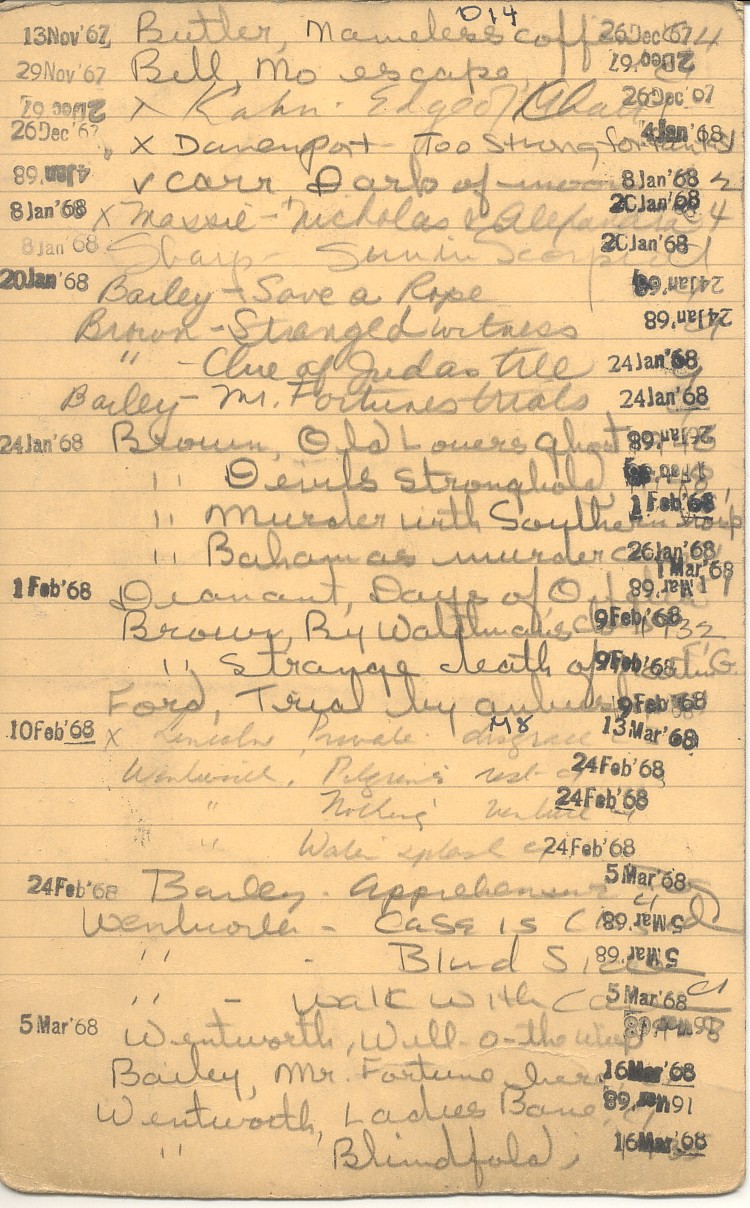 014
13Nov'67 Butler, Nameless coff 26Dec'67
29Nov'67 Bell, No escape, 2Dec'67
2Dec'67 X Kahn - Edge of 26Dec'67
26Dec'67 X Davenport - Too Strong for 4Jan'68
4Jan'68 ✓ Carr Dark of moon 8Jan'68
8Jan'68 X Massie - Nicholas & Alexandra 20Jan'68
8Jan'68 Sharp - Sun in Scorpio 20Jan'68
20Jan'68 Bailey - Save a Rope 24Jan'68
Brown - Strangled witness 24Jan'68
" - Clue of Judas tree 24Jan'68
Bailey - Mr. Fortunes trials 24Jan'68
24Jan'68 Brown, Old Lovers ghost 26Jan'68
" Devils Stronghold,
" Murder with Southern 1 Feb'68
" Bahamas murder 26Jan'68
1 Mar'68
1 Feb'68 Days of 1 Mar'68
Brown, By 9Feb'68
" Strange death of 9Feb'68
Ford, Trial by ambush 9Feb'68
M8
10Feb'68 X Lincoln, Private disgrace 13Mar'68
Wentworth, Pilgrim's rest 24Feb'68
" Nothing venture 24Feb'68
" Water splash 24Feb'68
24Feb'68 Bailey - Apprehensive 5Mar'68
Wentworth - Case is Closed 5Mar'68
" - Blind Side 5Mar'68
" - Walk with Ca 5Mar'68
5Mar'68 Wentworth, Will-o-the wisp
Bailey, Mr. Fortune here 16Mar'68
Wentworth, Ladies Bane, 16Mar'68
" Blindfold, 16Mar'68